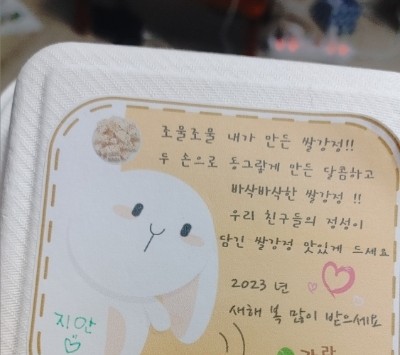 조물조물 내가 만든 쌀강정!!
두 손으로 동그랗게 만든 달콤하고
바삭바삭한 쌀강정 !!
우리 친구들의 정성이
담긴 쌀강정 맛있게 드세요
2023 년
새해 복 많이 받으세요
지안